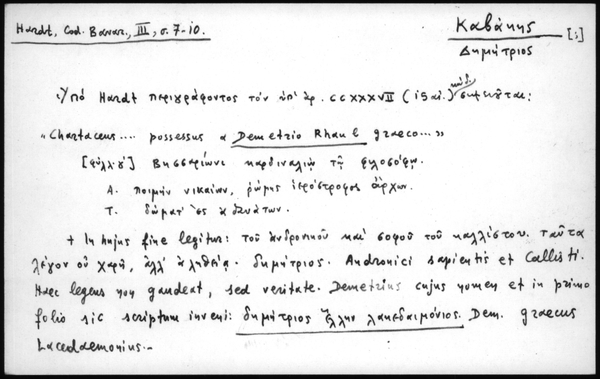 Hardt, Cod. Bavar., III, σ. 7-10.
Καβάκης [;]
Δημήτριος
Ὑπό Hardt περιγράφοντος τόν ὑπ' ἀρ. CCXXXVII (ις αἰ.) κώδ. σημειοῦται:
"Chartaceus.... possessus a Demetrio Rhaul graeco..."
[φύλλ. γ'] Βησσαρίωνι καρδιναλίῳ τῷ φιλοσόφῳ.
Α. ποιμήν νικαίων, ῥώμης ἱερόστροφος ἄρχων.
Τ. δώματ' ἐς ἀθανάτων.
+ In hujus fine legitur: τοῦ ἀνδρονίκου καί σοφοῦ τοῦ καλλίστου. ταῦτα
λέγων οὐ χαρῇ, ἀλλ' ἀληθείᾳ. δημήτριος. Andronici sapientis et Callisti.
Haec legens non gaudeat, sed veritate. Demetrius cujus nomen et in primo
folio sic scriptum inveni: δημήτριος ἕλλην λακεδαιμόνιος. Dem. graecus
Lacedaemonius.-